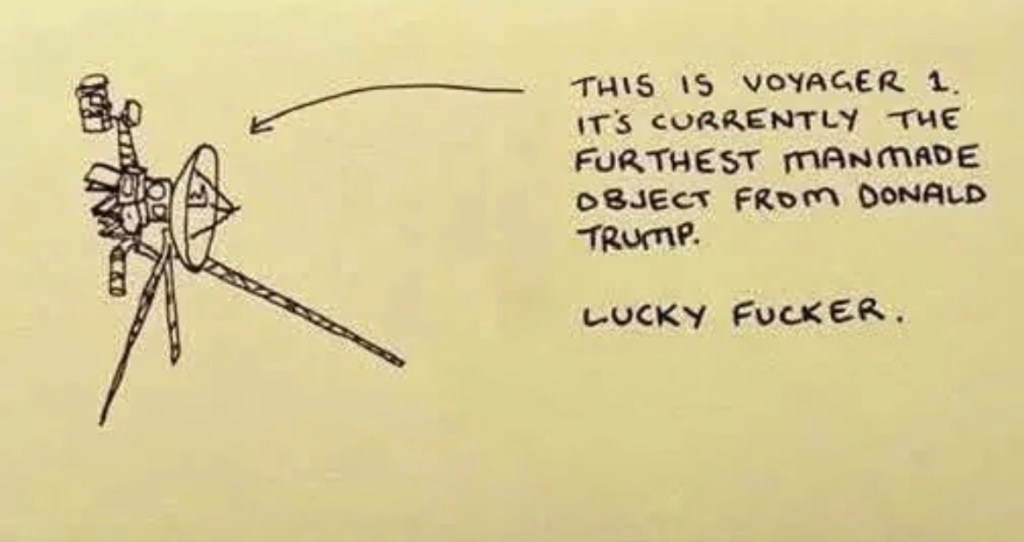 THIS IS VOYAGER 1.
IT'S CURRENTLY THE
FURTHEST MANMADE
OBJECT FROM DONALD
TRUMP.
LUCKY FUCKER.